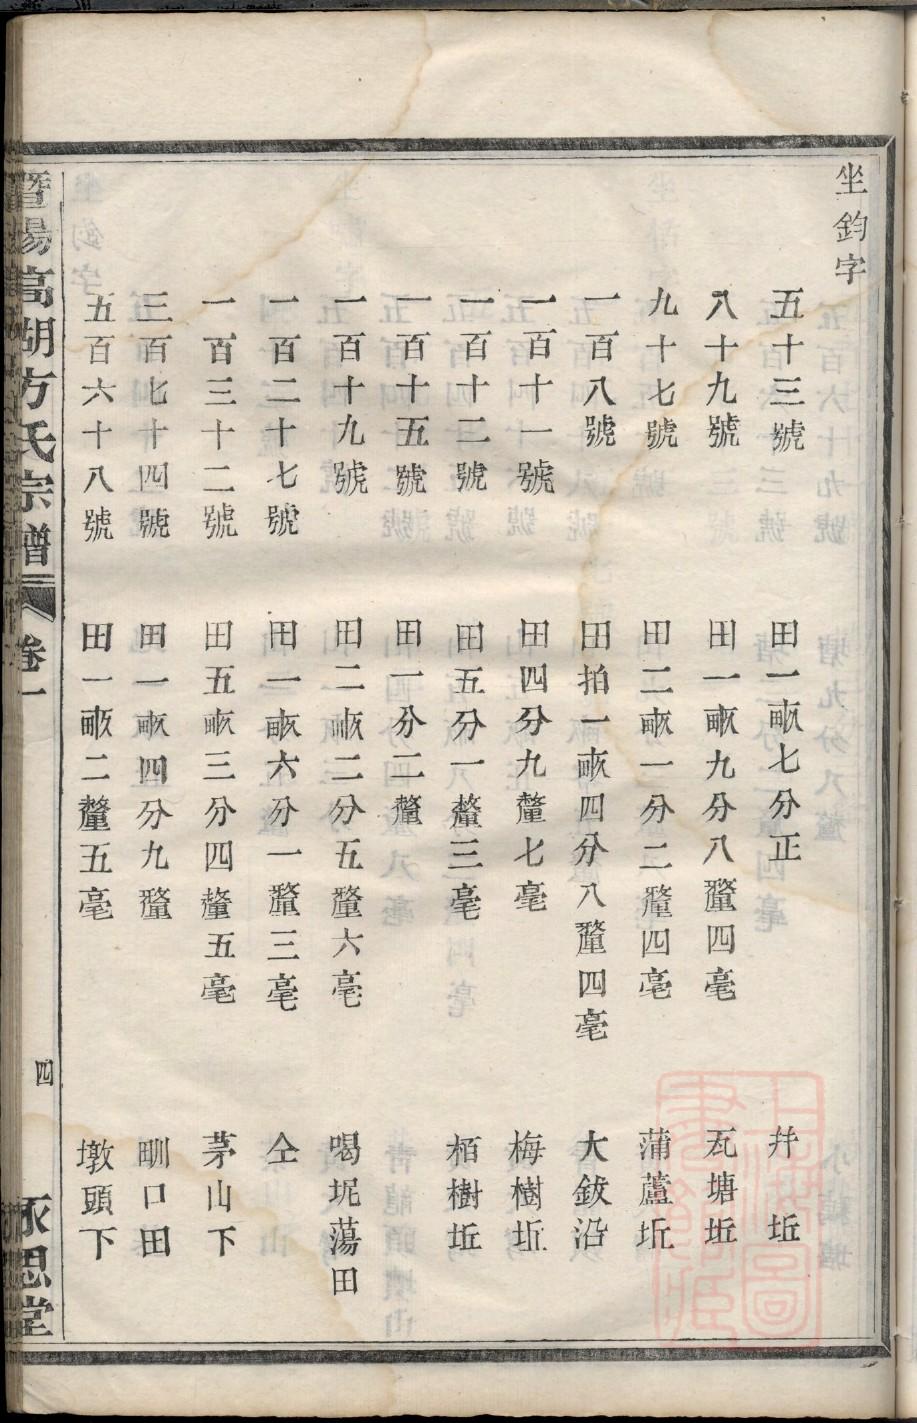 坐鈞字
五十三號 田一畝七分正 井坵
八十九號 田一畝九分八釐四毫 瓦塘坵
九十七號 田二畝一分二釐四毫 蒲蘆坵
一百八號 田拍一畝四分八釐四毫 大鈸沿
一百十一號 田四分九釐七毫 梅樹坵
一百十二號 田五分一釐三毫 栢樹坵
一百十五號 田一分二釐
一百十九號 田二畝二分五釐六毫 喝坭蕩田
一百二十七號 田一畝六分一釐三毫 仝
一百三十二號 田五畝三分四釐五毫 茅山下
三百七十四號 田一畝四分九釐 甽口田
五百六十八號 田一畝二釐五毫 墩頭下
暨陽高湖方氏宗譜 卷一 四 永思堂